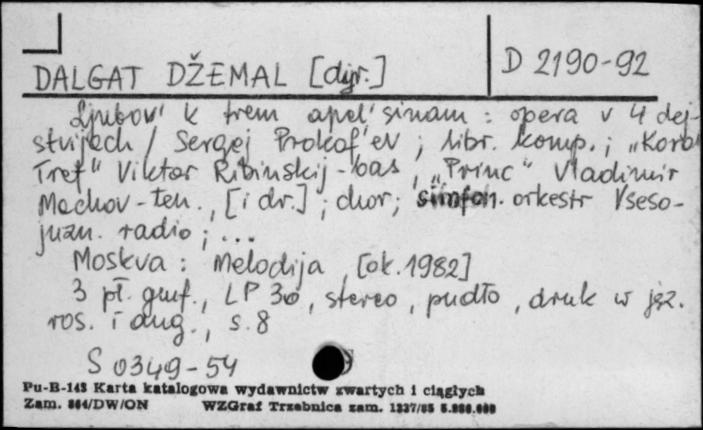 DALGAT DŽEMAL [dyr.]
D 2190-92
Ljubov' k trem apel'sinam : opera v 4 dej-
stvijach / Sergej Prokof'ev ; libr. komp. ; „Korol'
Tref" Viktor Ribinskij - bas, „Princ" Vladimir
Machov - ten., [i dr.] ; chor ; simfon. orkestr Vseso-
juzn. radio ; ...
Moskva : Melodija, [ok. 1982]
3 pł. gmf., LP 30, stereo, pudło, druk w jęz.
ros. i ang., s. 8
S 0349-54
Pu-B-143 Karta katalogowa wydawnictw zwartych i ciągłych
Zam. 864/DW/ON WZGraf Trzebnica zam. 1337/85 5.000.000